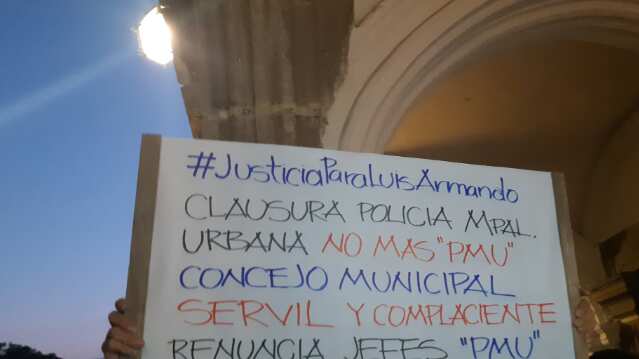 #JusticiaParaLuisArmando
CLAUSURA POLICIA MPAL.
URBANA NO MAS "PMU"
CONCEJO MUNICIPAL
SERVIL Y COMPLACIENTE
RENUNCIA JEFES "PMU"